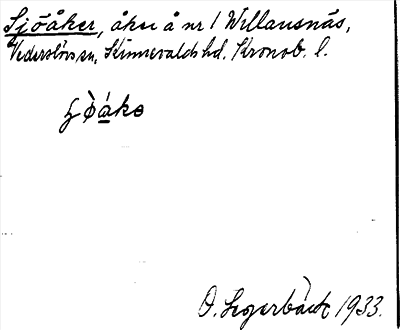 Sjöåker, åker å nr 1 Willausnäs,
Vederslövs sn, Kinnevalds hd. Kronob. l.
O. Segerbäck 1933.